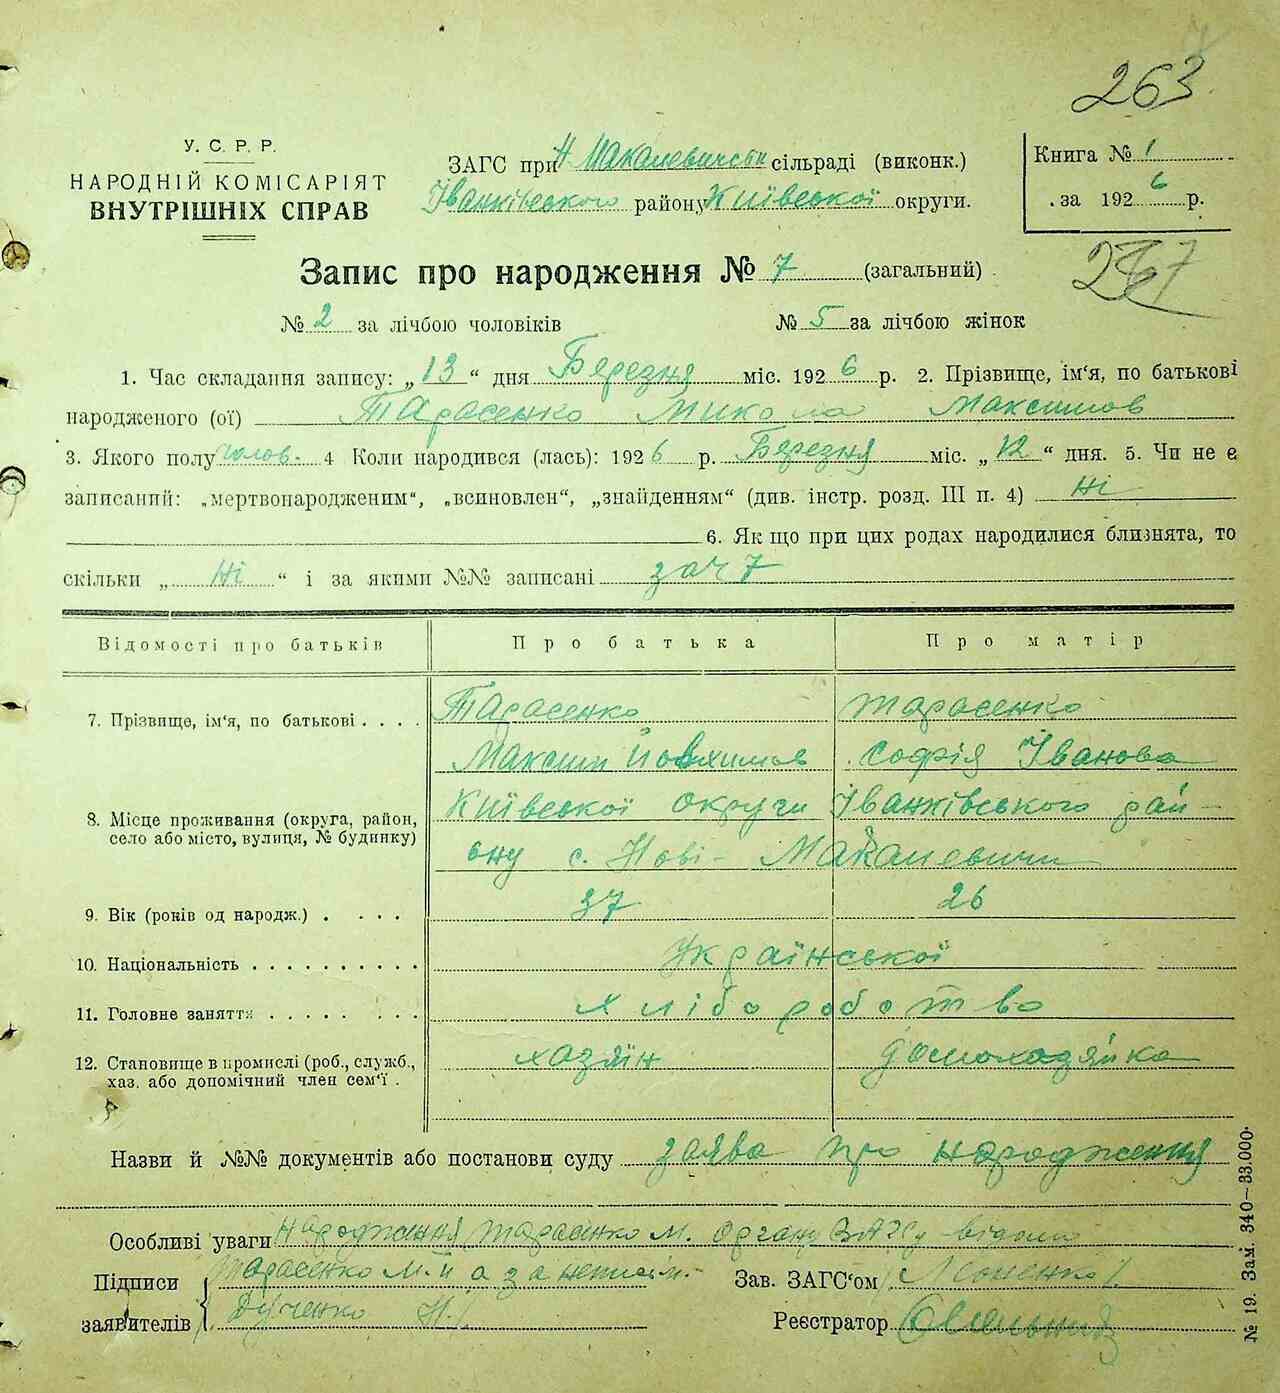 263
У. С. Р. Р.
НАРОДНІЙ КОМІСАРІЯТ
ВНУТРІШНІХ СПРАВ
ЗАГС при Н Макалевичськ сільраді (виконк.)
Іванківського району Київської округи.
Книга № 1
за 1926 р.
Запис про народження № 7 (загальний)
№ 2 за лічбою чоловіків № 5 за лічбою жінок
1. Час складання запису: „13“ дня Березня міс. 1926 р. 2. Прізвище, ім‘я, по батькові
народженого (ої) Тарасенко Микола Максимов
3. Якого полу чолов. 4 Коли народився (лась): 1926 р. Березня міс. „12“ дня. 5. Чи не є
записаний: „мертвонародженим“, „всиновлен“, „знайденням“ (див. інстр. розд. III п. 4) Ні
6. Як що при цих родах народилися близнята, то
скільки „Ні“ і за якими №№ записані за ч 7
Відомості про батьків Про батька Про матір
7. Прізвище, ім‘я, по батькові . . . . Тарасенко Тарасенко
Максим Йовхимов Софія Іванова
8. Місце проживання (округа, район, село або місто, вулиця, № будинку) Київської округи Іванківського рай-
ону с. Нові-Макалевичи
9. Вік (років од народж.) . . . . 37 26
10. Національність . . . . . . . . . . Української
11. Головне заняття . . . . . . . . Хліборобство
12. Становище в промислі (роб., служб., хаз. або допомічний член сем‘ї . хазяїн домохазяйка
Назви й №№ документів або постанови суду заява про народження
Особливі уваги Народження Тарасенко М. органу ЗАГСу
Підписи Тарасенко М. Зав. ЗАГС‘ом
заявителів Реєстратор
№ 19. Зам. 340—33.000.